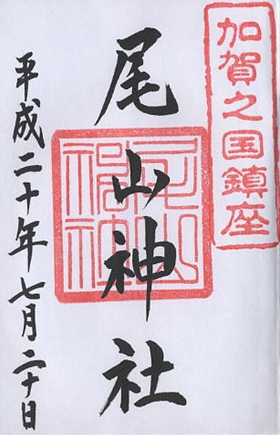 加賀之国鎮座
尾山神社
平成二十年七月二十日